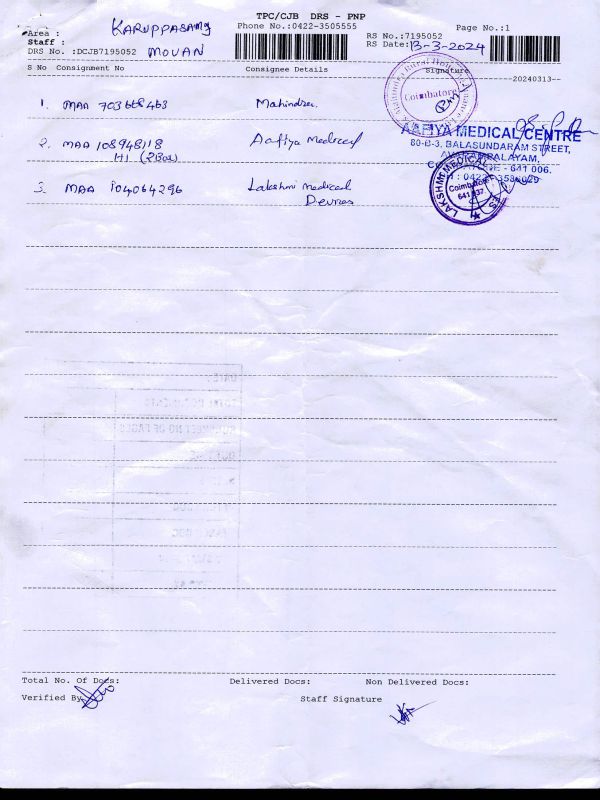 TPC/CJB DRS - PNP
Area : KARUPPASAMY
Phone No.:0422-3505555
Page No.:1
Staff :
RS No.:7195052
DRS No. :DCJB7195052 MOVAN
RS Date: 13-3-2024
S No Consignment No Consignee Details Signature
20240313--
1. MAA 703668463 Mahindra
Coimbatore
2. MAA 108948118 Aafiya Medical
H1 (2Box)
AAFIYA MEDICAL CENTRE
80-B-3, BALASUNDARAM STREET,
641 006.
3. MAA 104064296 Lakshmi medical
Devices
LAKSHMI MEDICAL
Coimbatore
641 037
DATE:
Total No. Of Docs: Delivered Docs: Non Delivered Docs:
Verified By
Staff Signature